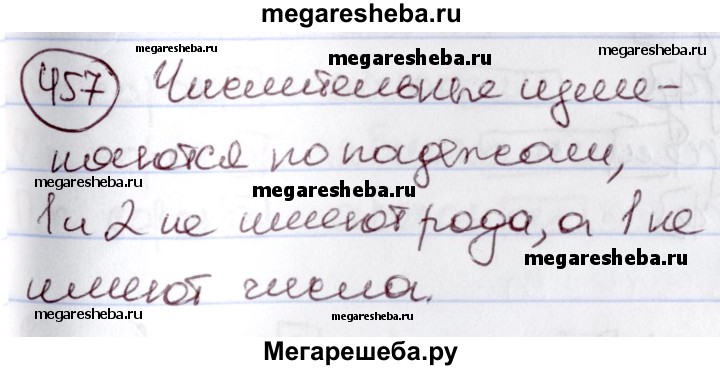 megaresheba.ru
megaresheba.ru megaresheba.ru megaresheba.ru
457 Числительные изме-
няются по падежам,
megaresheba.ru megaresheba.ru
1 и 2 не имеют рода, а 1 не
megaresheba.ru
имеют числа.
megaresheba.ru megaresheba.ru
Мегарешеба.ру